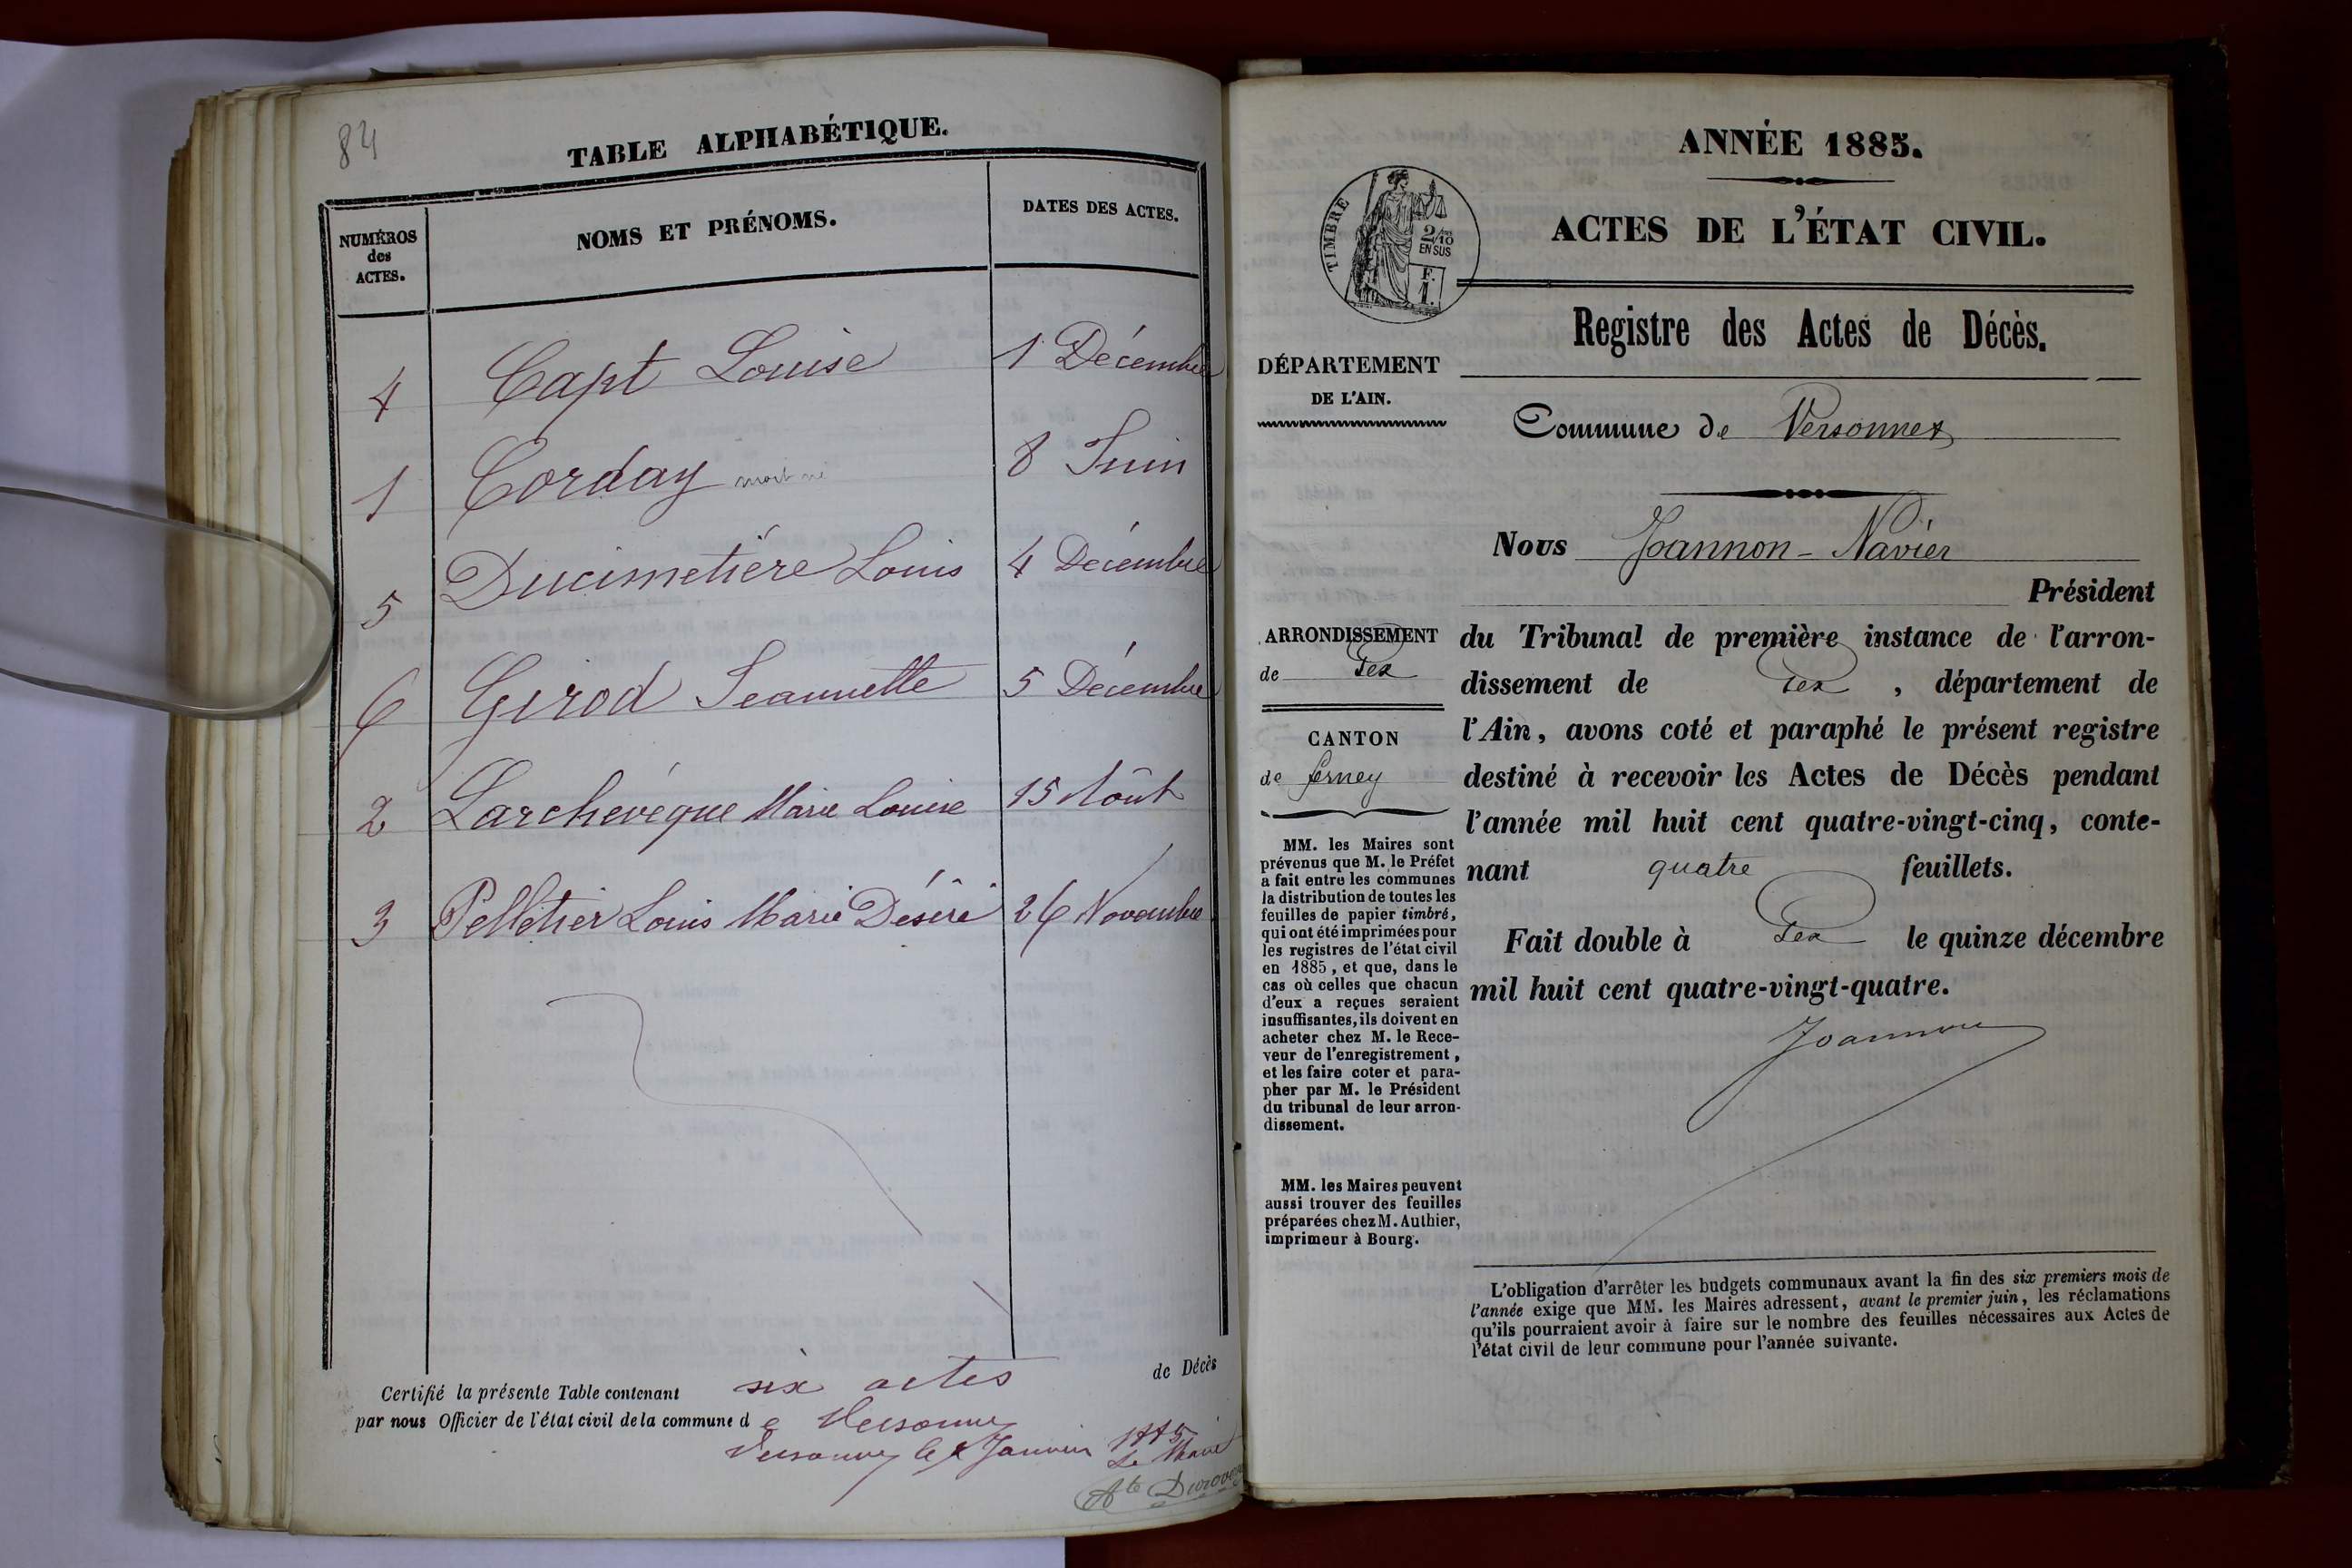 84
TABLE ALPHABÉTIQUE.
NUMÉROS
des
ACTES.
NOMS ET PRÉNOMS.
DATES DES ACTES.
4 Capt Louise 1 Décembre
1 Corday mort né 8 Juin
5 Ducimetière Louis 4 Décembre
6 Girod Jeannette 5 Décembre
2 Larchevêque Marie Louise 15 Août
3 Pelletier Louis Marie Désiré 26 Novembre
Certifié la présente Table contenant six actes de Décès
par nous Officier de l'état civil de la commune d e Versonnex
Versonnex le Janvier 1885
Le Maire
ANNÉE 1885.
ACTES DE L'ÉTAT CIVIL.
TIMBRE
2/10
EN SUS
F.
1.
Registre des Actes de Décès.
DÉPARTEMENT
DE L'AIN.
Commune de Versonnex
Nous Joannon-Navier
Président
ARRONDISSEMENT
de Gex
CANTON
de ferney
du Tribunal de première instance de l'arron-
dissement de Gex , département de
l'Ain, avons coté et paraphé le présent registre
destiné à recevoir les Actes de Décès pendant
l'année mil huit cent quatre-vingt-cinq, conte-
nant quatre feuillets.
Fait double à Gex le quinze décembre
mil huit cent quatre-vingt-quatre.
Joannon
MM. les Maires sont
prévenus que M. le Préfet
a fait entre les communes
la distribution de toutes les
feuilles de papier timbré,
qui ont été imprimées pour
les registres de l'état civil
en 1885, et que, dans le
cas où celles que chacun
d'eux a reçues seraient
insuffisantes, ils doivent en
acheter chez M. le Rece-
veur de l'enregistrement,
et les faire coter et para-
pher par M. le Président
du tribunal de leur arron-
dissement.
MM. les Maires peuvent
aussi trouver des feuilles
préparées chez M. Authier,
imprimeur à Bourg.
L'obligation d'arrêter les budgets communaux avant la fin des six premiers mois de
l'année exige que MM. les Maires adressent, avant le premier juin, les réclamations
qu'ils pourraient avoir à faire sur le nombre des feuilles nécessaires aux Actes de
l'état civil de leur commune pour l'année suivante.